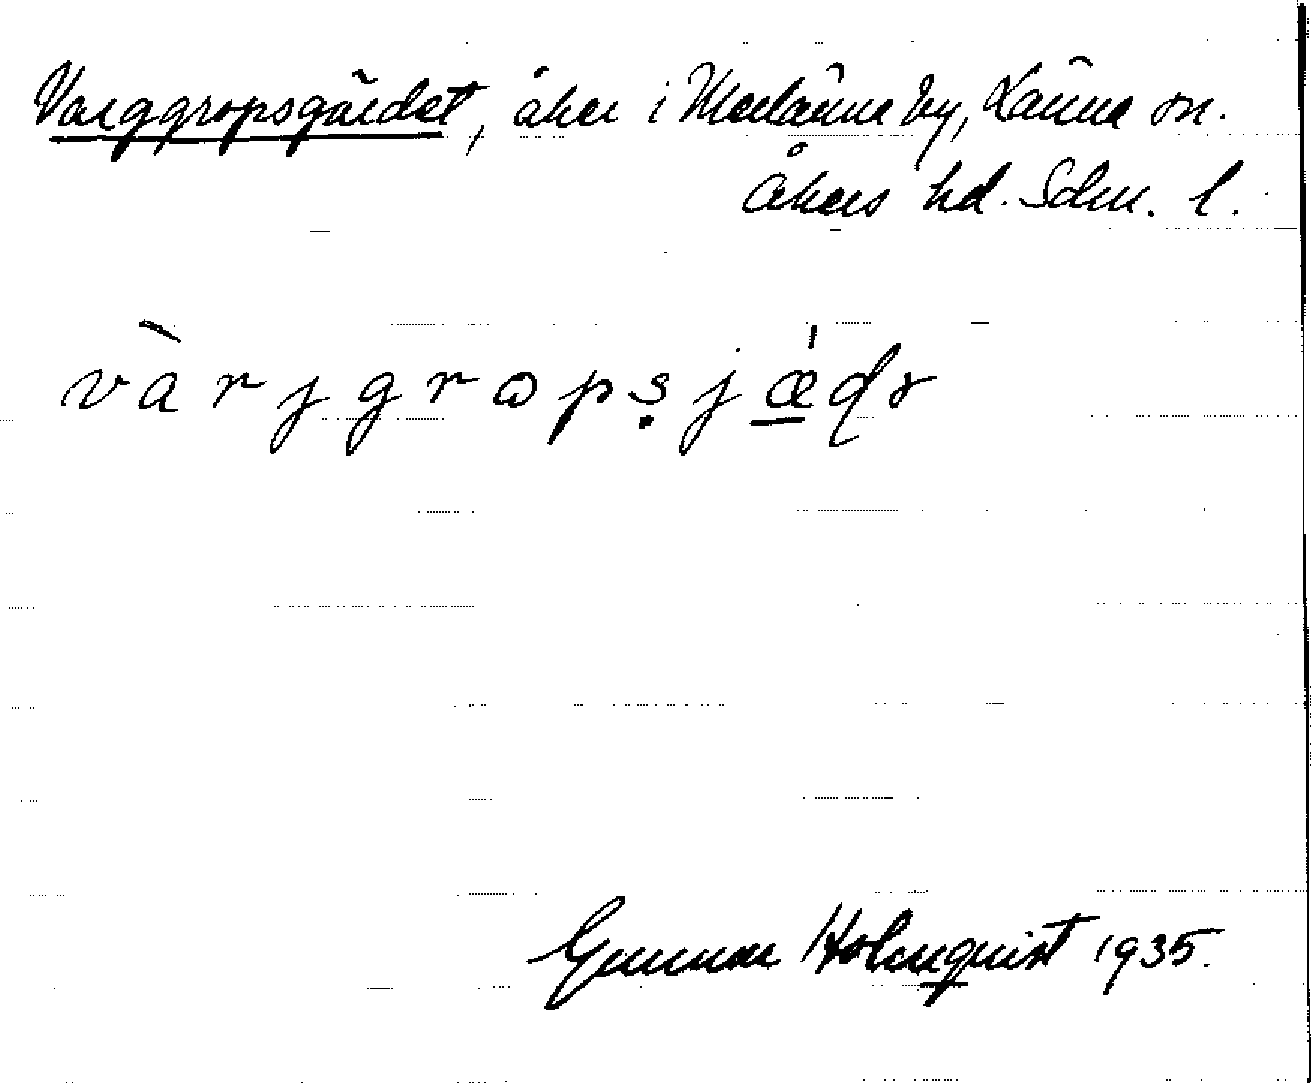 Varggropsgärdet, åker i Merlänna by, Länna sn.
Åkers hd. Sdm. l.
vàrjgrɷpsjæ̀dɾ
Gunnar Holmquist 1935.